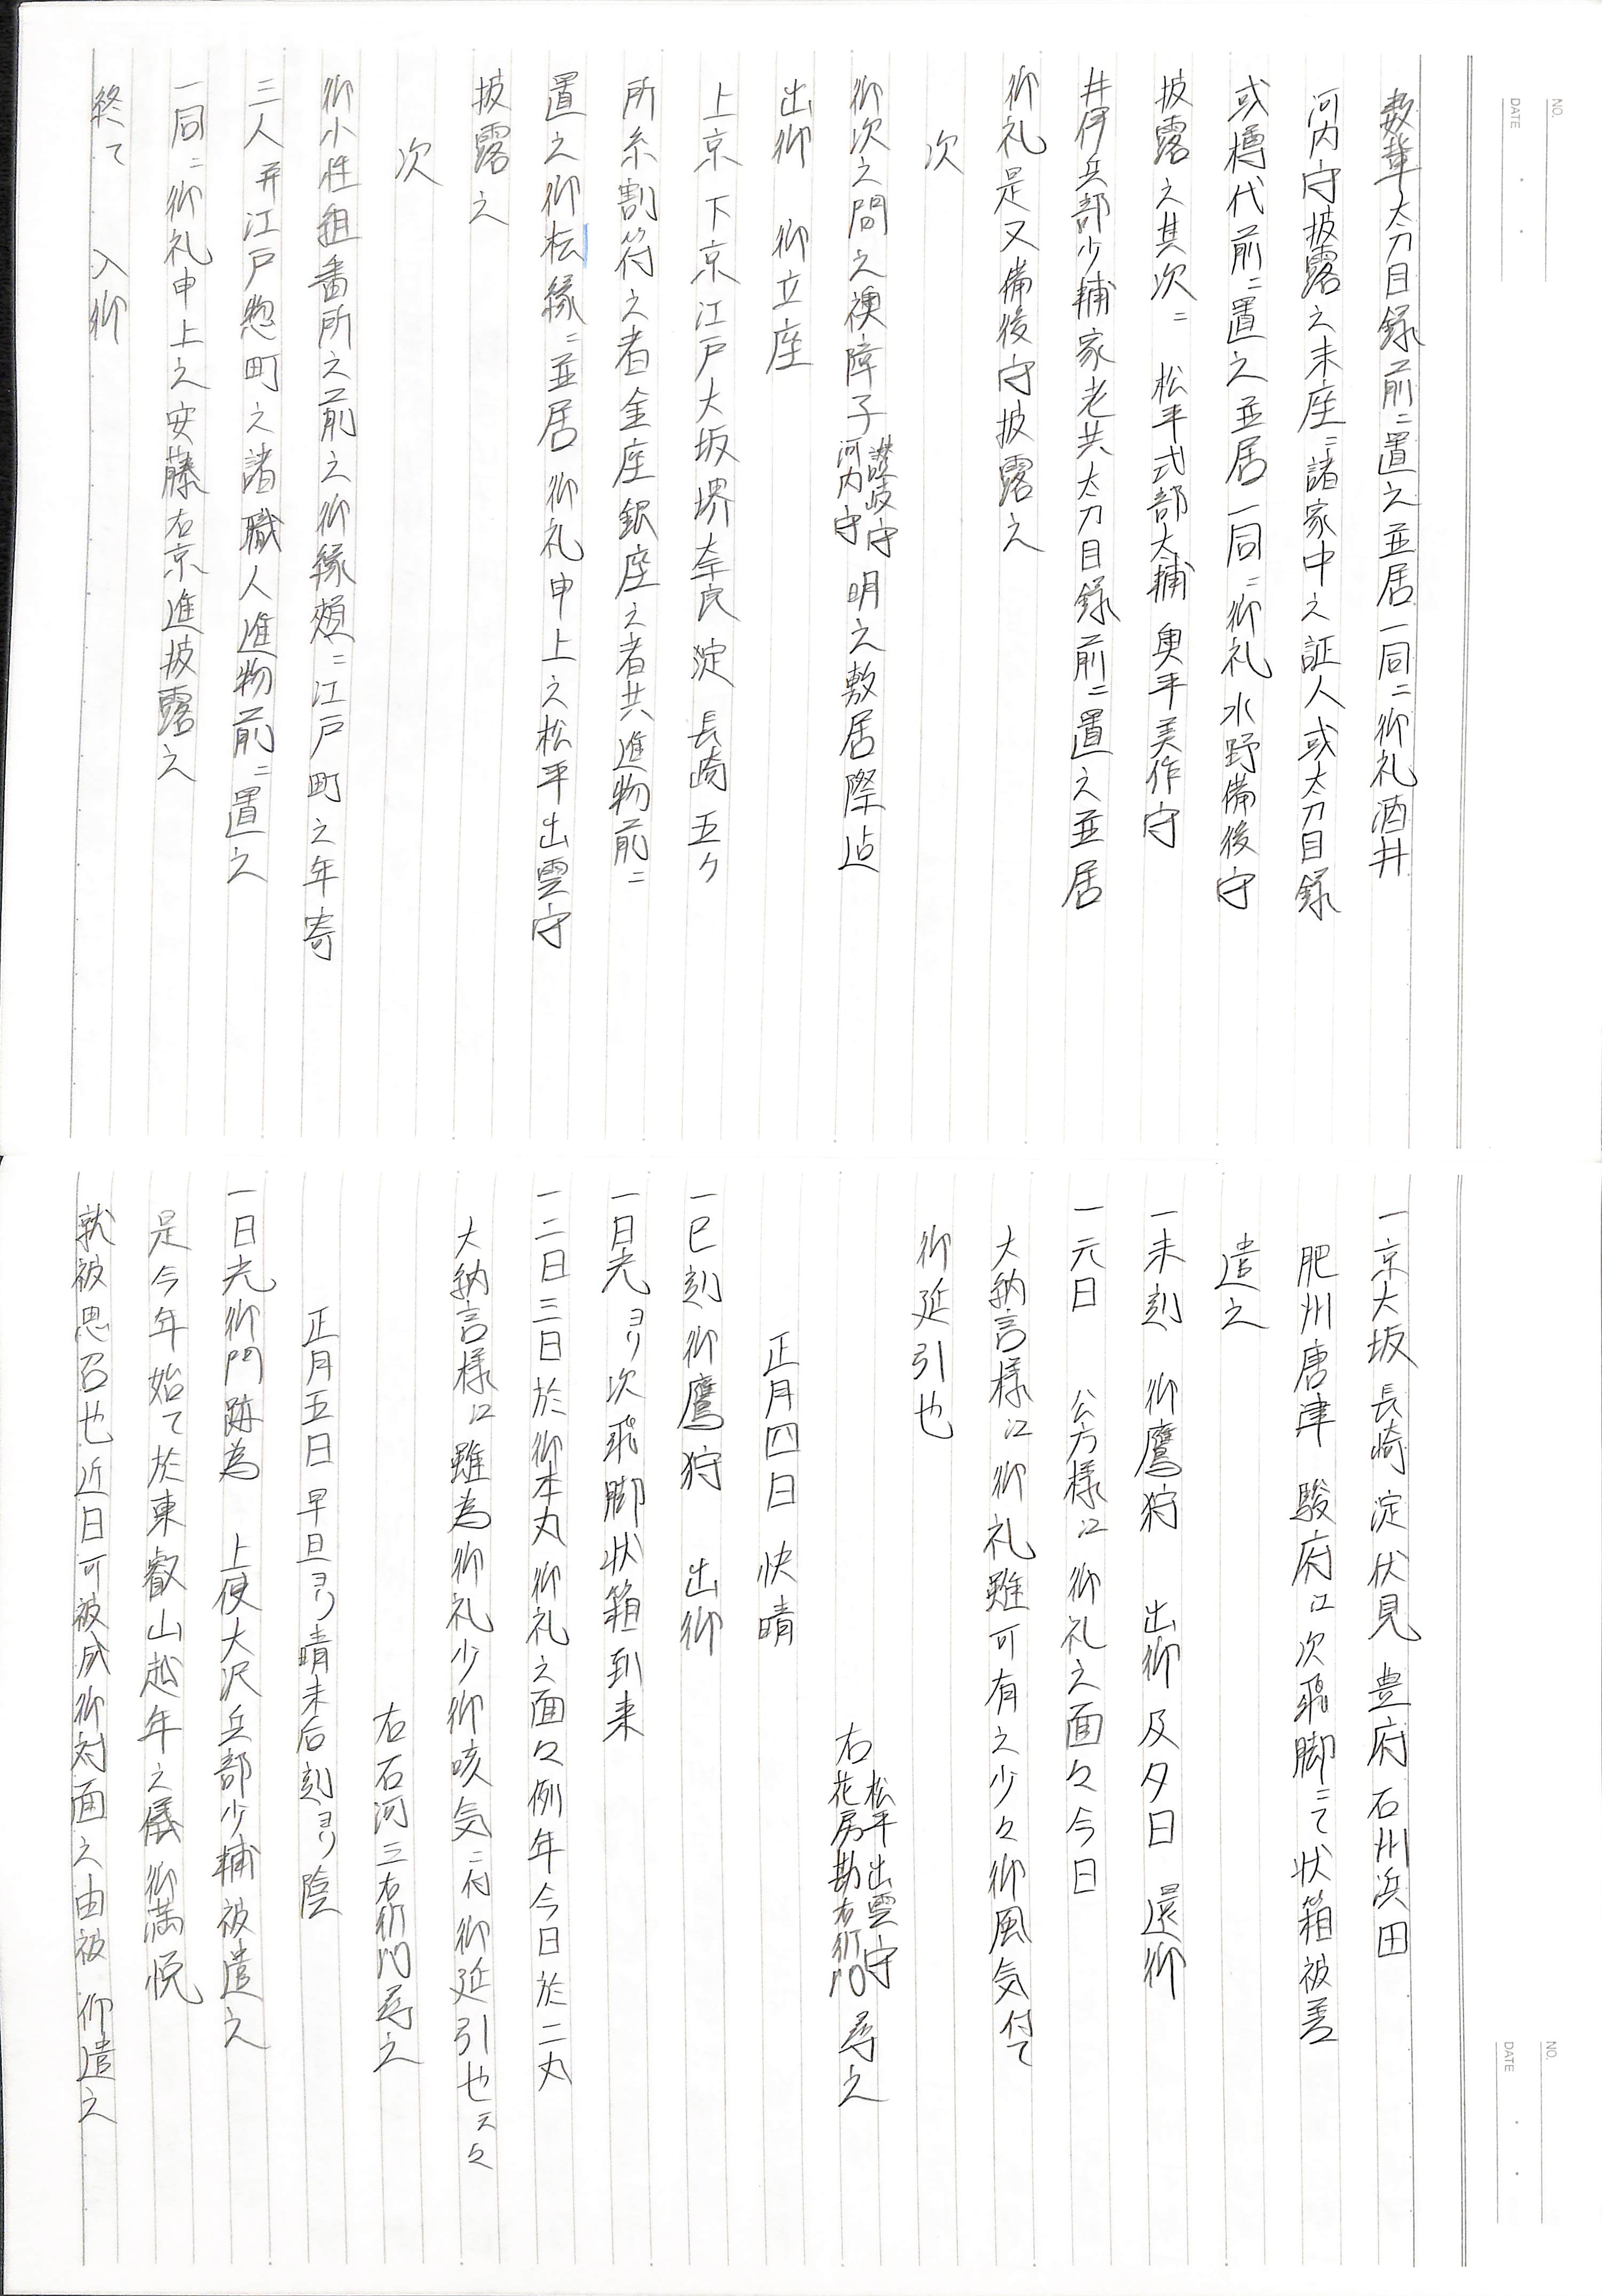 NO.
DATE
数輩太刀目録前ニ置之並居一同ニ御礼酒井
河内守披露之末座ニ諸家中之証人或太刀目録
或樽代前ニ置之並居一同ニ御礼水野備後守
披露之其次ニ 松平式部大輔 奥平美作守
井伊兵部少輔家老共太刀目録前ニ置之並居
御礼是又備後守披露之
次
御次之間之襖障子讃岐守河内守明之敷居際迠
出御 御立座
上京 下京 江戸大坂堺奈良 淀 長崎 五ケ
所糸割符之者金座銀座之者共進物前ニ
置之御椽縁ニ並居 御礼申上之松平出雲守
披露之
次
御小性組番所之前之御縁頬ニ江戸町之年寄
三人并江戸惣町之諸職人進物前ニ置之
一同ニ御礼申上之安藤右京進披露之
終て 入御
NO.
DATE
一京大坂 長崎 淀 伏見 豊府 石州浜田
肥州唐津 駿府江次飛脚ニて状箱被差
遣之
一未刻 御鷹狩 出御 及夕日 還御
一元日 公方様江御礼之面々今日
大納言様江御礼雖可有之少々御風気付て
御延引也
右松平出雲守花房勘右衛門尋之
正月四日 快晴
一巳刻御鷹狩 出御
一日光ヨリ次飛脚状箱到来
一二日三日於御本丸御礼之面々例年今日於二丸
大納言様江雖為御礼少御咳気ニ付御延引也云々
右石河三右衛門尋之
正月五日 早旦ヨリ晴未后刻ヨリ陰
一日光御門跡為 上使大沢兵部少輔被遣之
是今年始て於東叡山越年之儀御満悦
就被思召也近日可被成御対面之由被 仰遣之